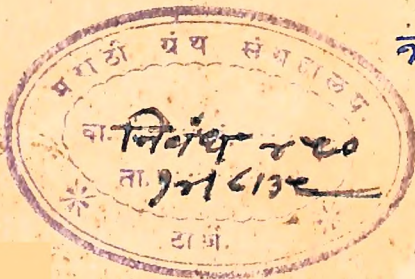 मराठी ग्रंथ संग्रहालय
वा. निबंध ४९०
ता. १२१८१३८
ठाणें.